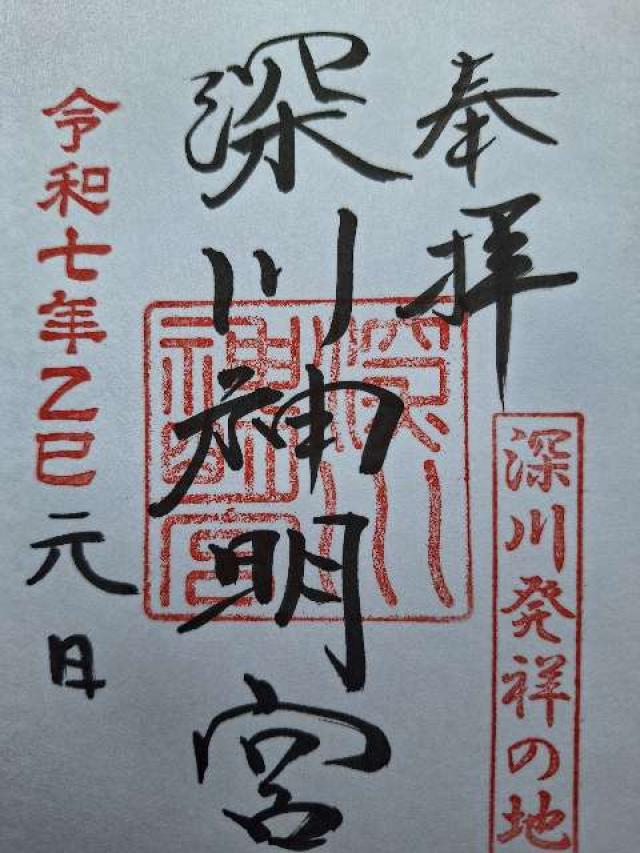 奉拝
深川発祥の地
深川神明宮
深川神明宮
令和七年乙巳元日